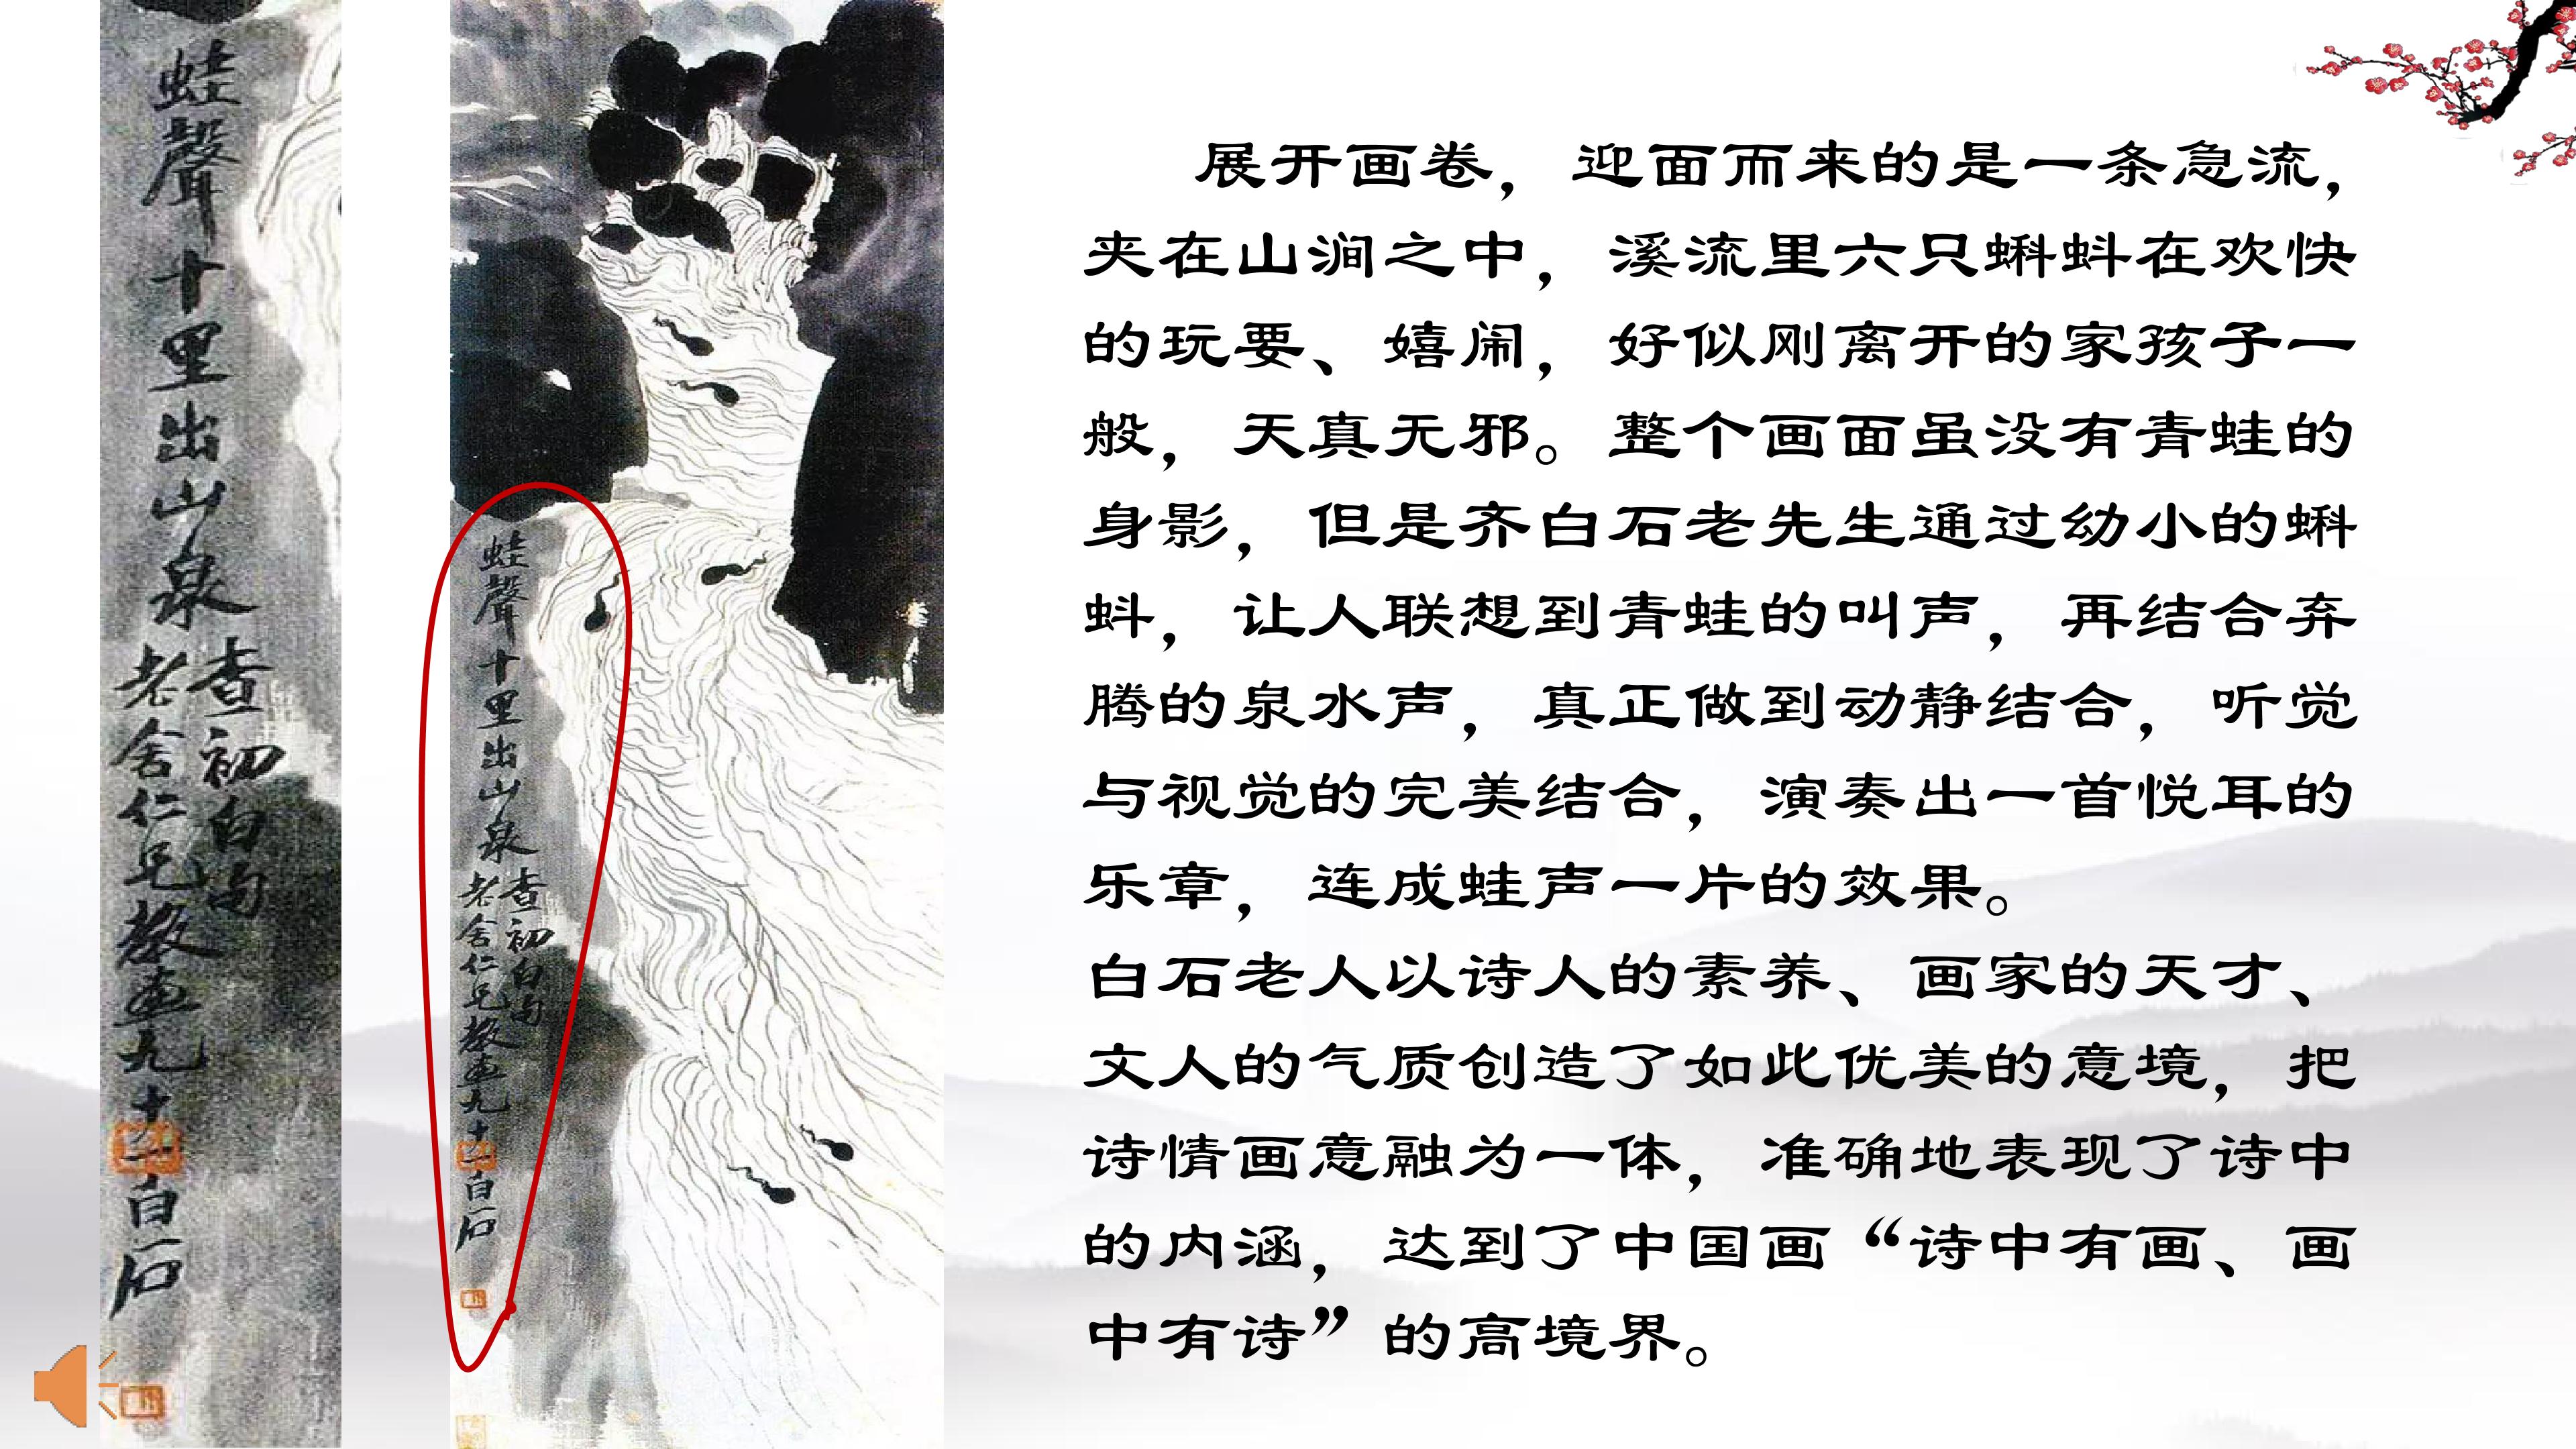 蛙聲十里出山泉
查初白句
老舍仁兄教画九十一白石
蛙聲十里出山泉
查初白句
老舍仁兄教画九十一白石
展开画卷，迎面而来的是一条急流，
夹在山涧之中，溪流里六只蝌蚪在欢快
的玩耍、嬉闹，好似刚离开的家孩子一
般，天真无邪。整个画面虽没有青蛙的
身影，但是齐白石老先生通过幼小的蝌
蚪，让人联想到青蛙的叫声，再结合奔
腾的泉水声，真正做到动静结合，听觉
与视觉的完美结合，演奏出一首悦耳的
乐章，连成蛙声一片的效果。
白石老人以诗人的素养、画家的天才、
文人的气质创造了如此优美的意境，把
诗情画意融为一体，准确地表现了诗中
的内涵，达到了中国画“诗中有画、画
中有诗”的高境界。